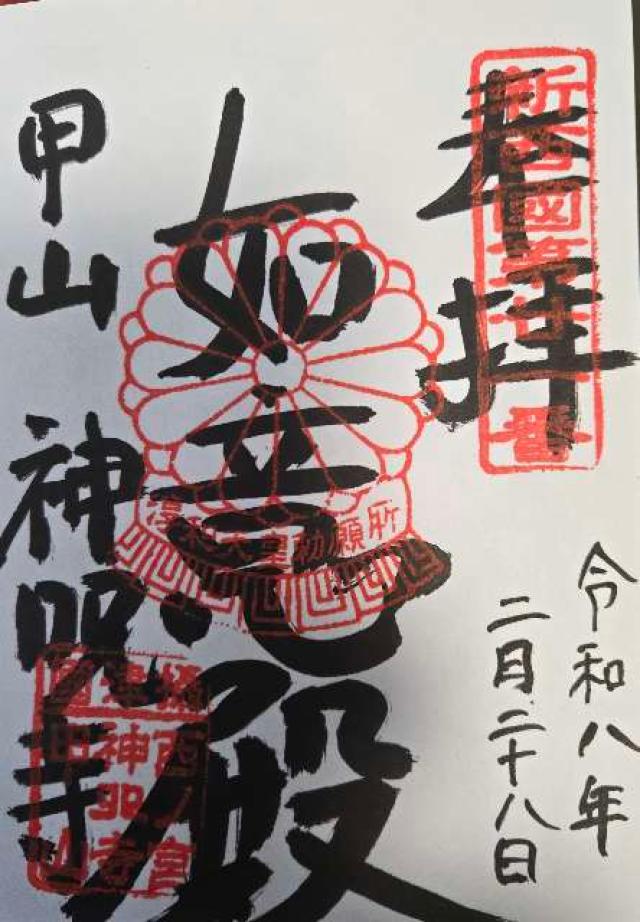 奉拝
新西國第廿一番
令和八年
二月二十八日
如意殿
淳和天皇勅願所
甲山 神呪寺
攝西ノ宮
神呪寺
甲山